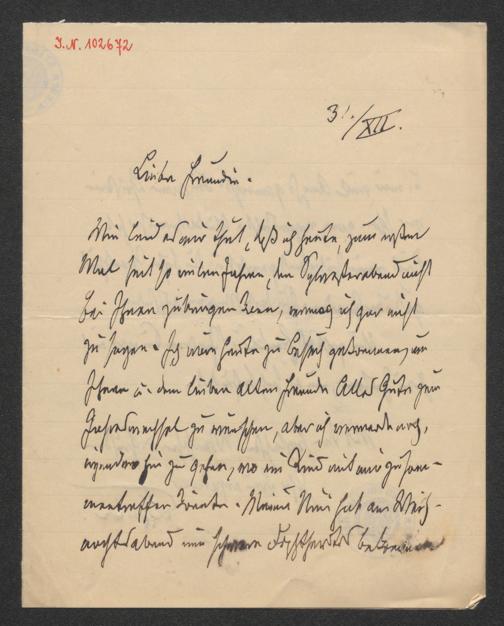 J.N. 102672
31./XII.
Liebe Freundin.
Wie leid es mir thut, daß ich heute, zum ersten
Mal seit so vielen Jahren, den Sylvesterabend nicht
bei Ihnen zubringen kann, vermag ich gar nicht
zu sagen. Ich wäre heute zu Besuch gekommen, um
Ihnen u. dem lieben alten Freunde Alles Gute zum
Jahreswechsel zu wünschen, aber ich vermeide es,
irgendwo hin zu gehen, wo ein Kind mit mir zusam-
mentreffen könnte. Meine hat am Weih-
nachtsabend eine schwere Diphtheritis bekommen